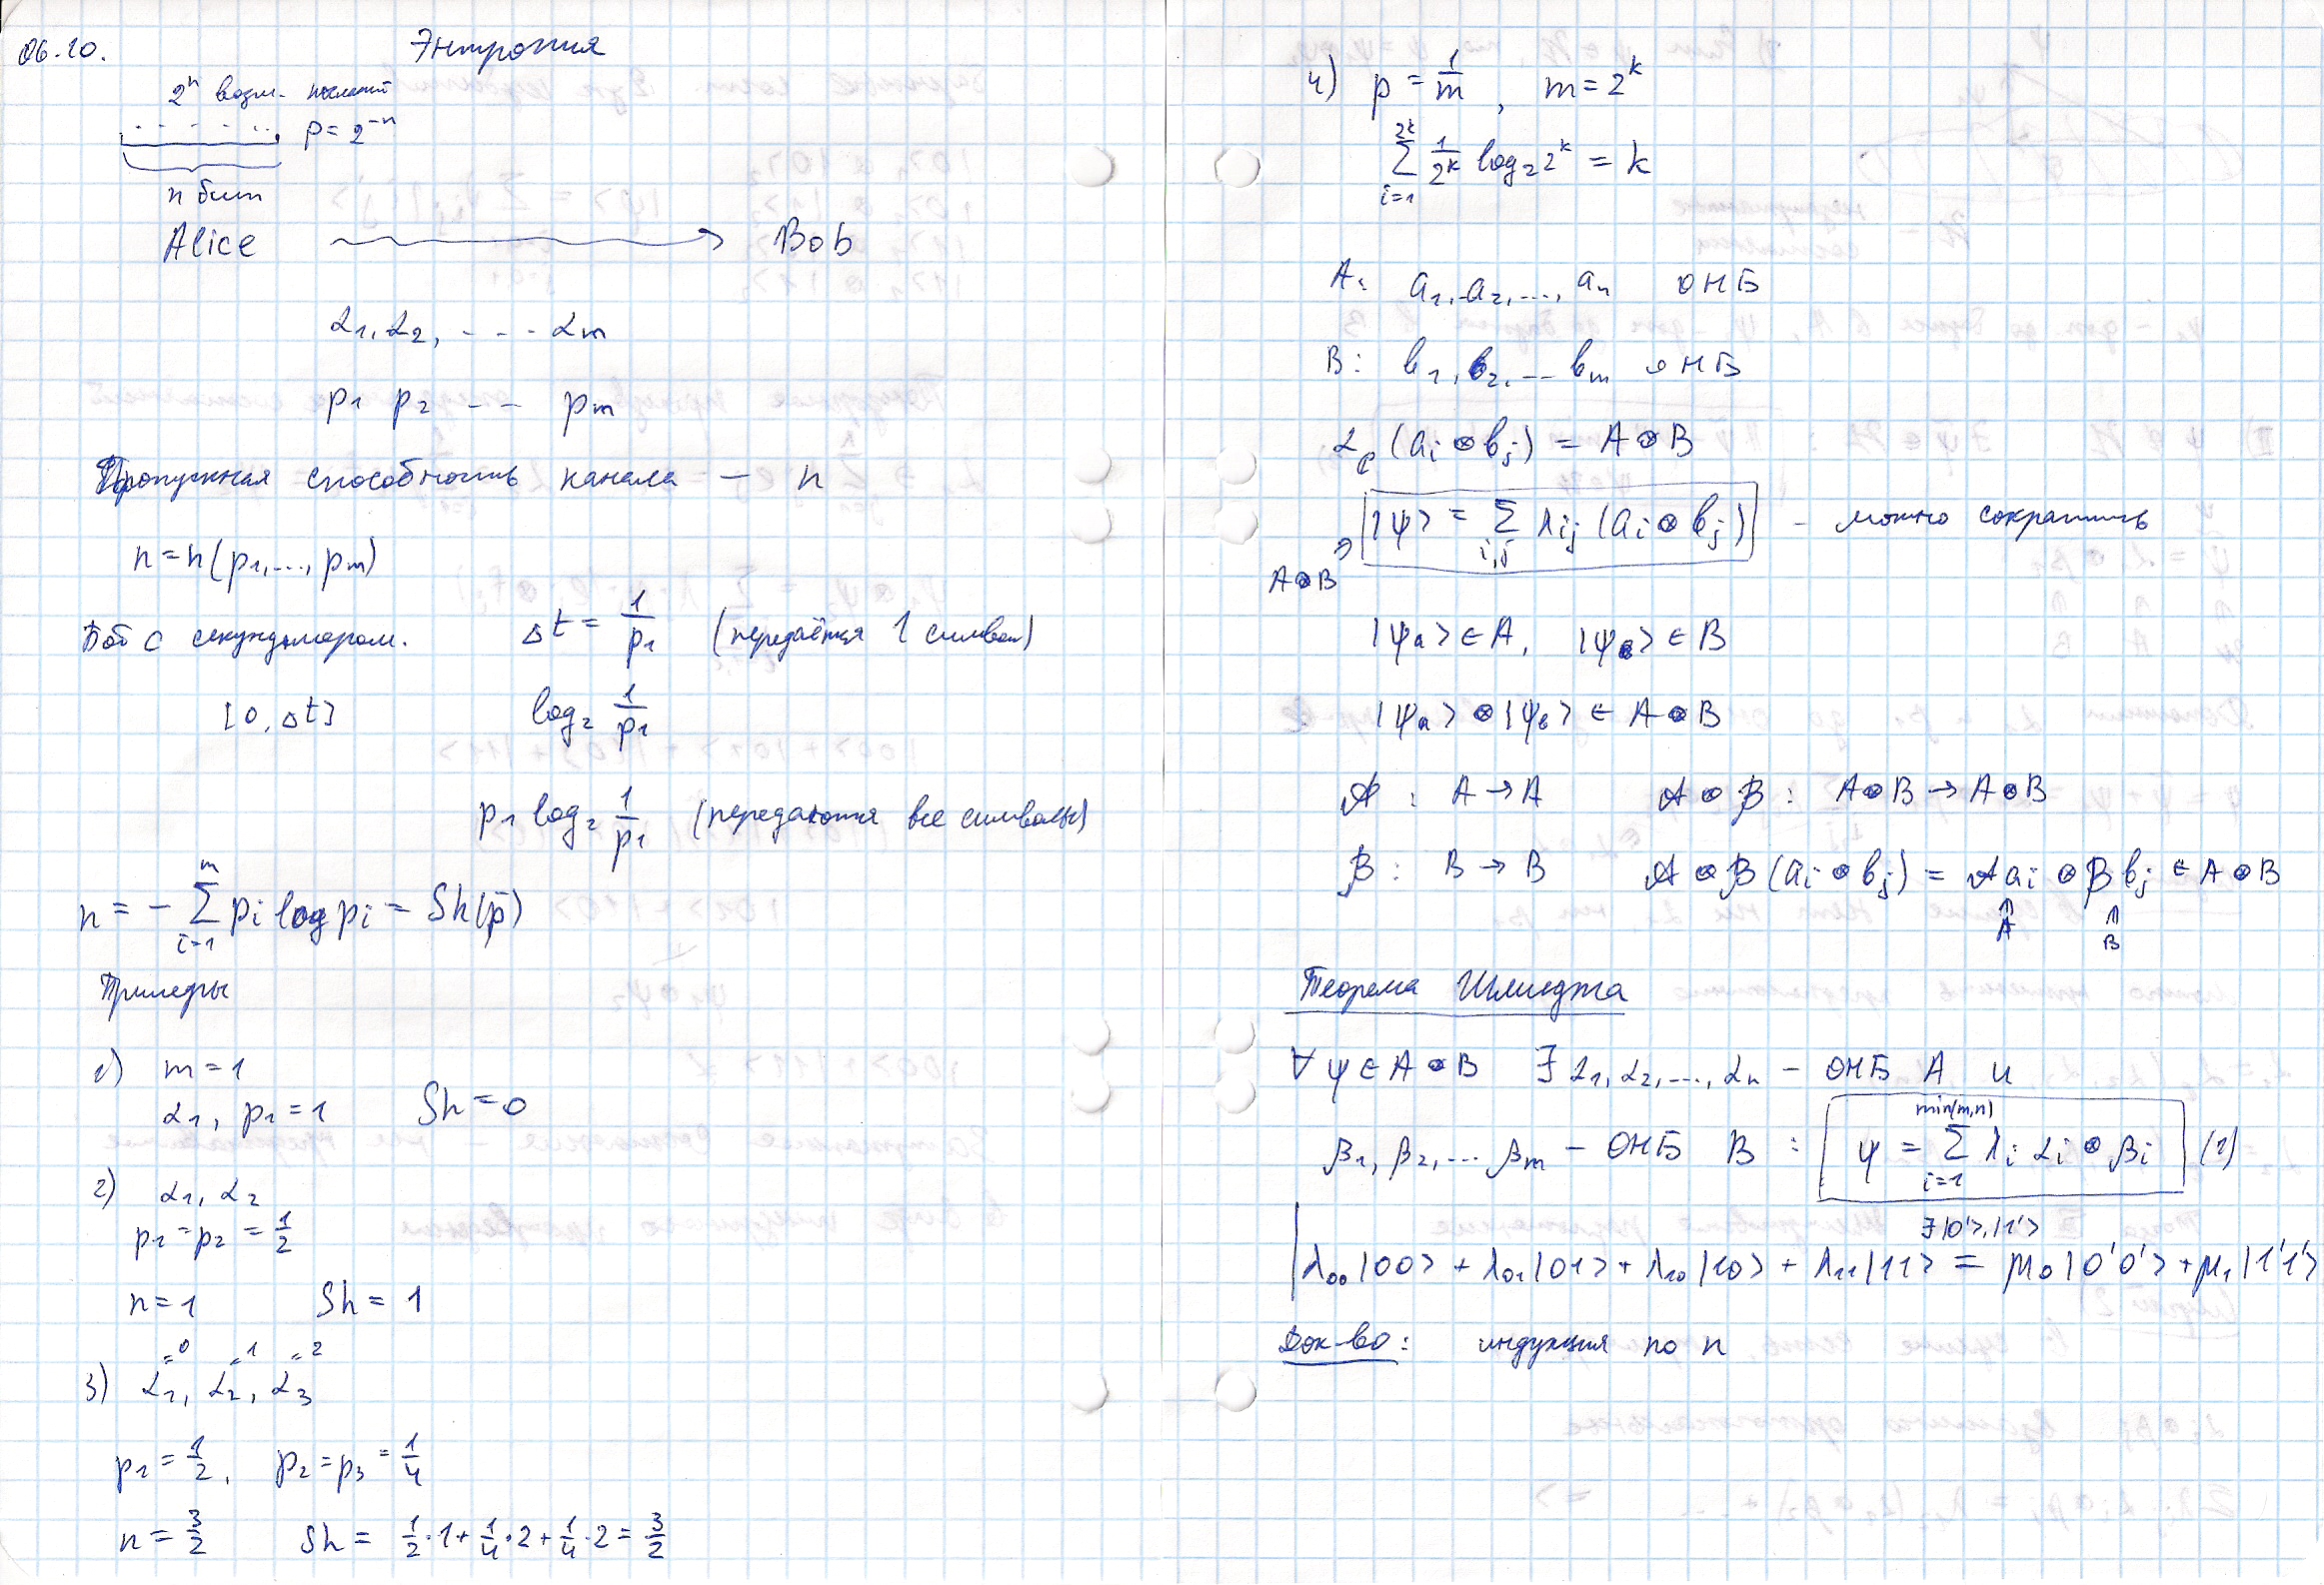 06.10.
Энтропия
2ⁿ возм. посланий
p = 2⁻ⁿ
n бит
Alice → Bob
α₁, α₂, ... αₘ
p₁ p₂ ... pₘ
Пропускная способность канала — n
n = n(p₁, ..., pₘ)
Боб с секундомером. Δt = 1/p₁ (передаётся 1 символ)
[0, Δt] log₂ 1/p₁
p₁ log₂ 1/p₁ (передаются все символы)
n = − ∑_{i=1}^{m} pᵢ log pᵢ = Sh(p̄)
Примеры
1) m = 1
α₁, p₁ = 1 Sh = 0
2) α₁, α₂
p₁ = p₂ = 1/2
n = 1 Sh = 1
=0 =1 =2
3) α₁, α₂, α₃
p₁ = 1/2, p₂ = p₃ = 1/4
n = 3/2 Sh = 1/2·1 + 1/4·2 + 1/4·2 = 3/2
4) p = 1/m, m = 2ᵏ
∑_{i=1}^{2ᵏ} 1/2ᵏ log₂ 2ᵏ = k
A: a₁, a₂, ..., aₙ ОНБ
B: b₁, b₂, ... bₘ ОНБ
(aᵢ ⊗ bⱼ) = A ⊗ B
|ψ> = ∑_{i,j} λᵢⱼ (aᵢ ⊗ bⱼ) – можно сократить
A⊗B
|ψₐ> ∈ A, |ψ_b> ∈ B
|ψₐ> ⊗ |ψ_b> ∈ A ⊗ B
𝒜 : A → A 𝒜 ⊗ ℬ : A⊗B → A⊗B
ℬ : B → B 𝒜 ⊗ ℬ (aᵢ ⊗ bⱼ) = 𝒜aᵢ ⊗ ℬbⱼ ∈ A ⊗ B
A B
Теорема Шмидта
∀ ψ ∈ A ⊗ B ∃ α₁, α₂, ..., αₙ – ОНБ A и
β₁, β₂, ... βₘ – ОНБ B : ψ = ∑_{i=1}^{min(m,n)} λᵢ αᵢ ⊗ βᵢ (1)
∃ |0'>, |1'>
λ₀₀|00> + λ₀₁|01> + λ₁₀|10> + λ₁₁|11> = μ₀|0'0'> + μ₁|1'1'>
Док-во: индукция по n